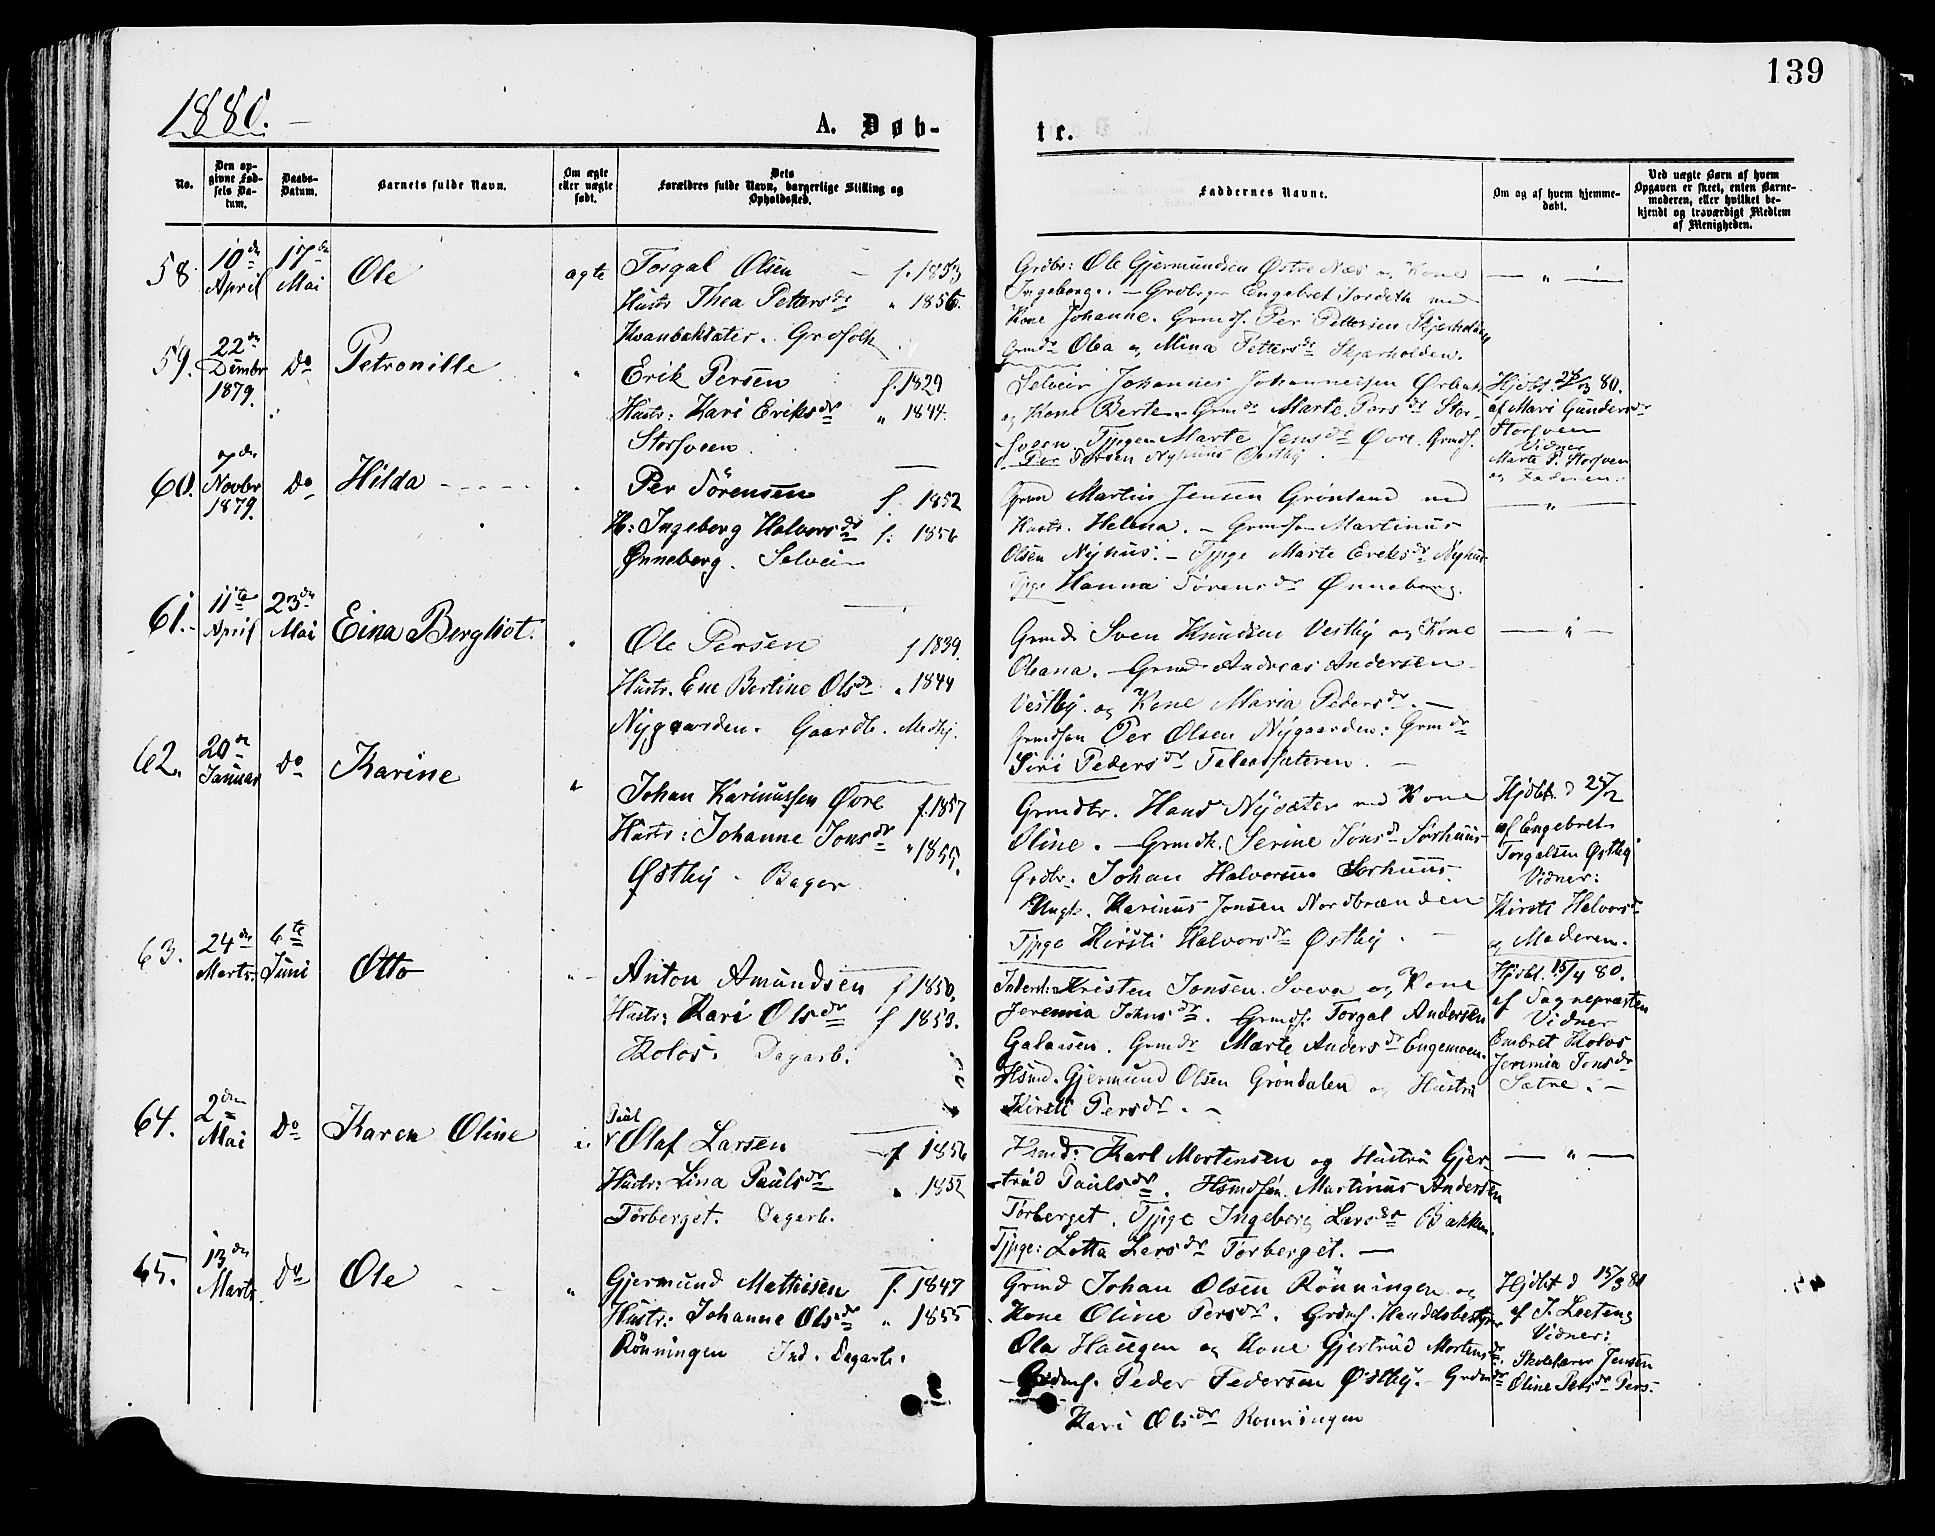 139
1880.
A. Døb-
te.
No.
Den op-
givne Fød-
sels Da-
tum.
Daabs-
Datum.
Barnets fulde Navn.
Om ægte
eller uægte
født.
Dets
Forældres fulde Navn, borgerlige Stilling og
Opholdssted.
Faddernes Navne.
Om og af hvem hjemme-
døbt.
Ved uægte Børn af hvem
Opgaven er skeet, enten Barne-
moderen, eller hvilket be-
kjendt og troværdigt Medlem
af Menigheden.
58
10de April
17de Mai
Ole
ægte
Torgal Olsen f. 1853
Hustr Thea Pettersdr " 1856.
Grdfolk
Grdbr: Ole Gjermundsen Østre Næs og Kone
Ingeborg. – Engebret med
Kone Johanne. Grmds. Per Pettersen
Grmdr Olea og Mina Pettersdr Skjærholden.
— " —
59.
22de Dcmbr 1879.
Do
Petronille
"
Erik Persen f. 1829
Hustr: Kari Eriksdr " 1844.
Storsveen.
Selveir Johannes Johannessen
og Kone Berte. Grmdr Marte Persdr Stor-
sveen. Tjpgen Marte Jensdr Øvre. Grmds.
Per Persen Nyhuus Østby.
Hjdbt. 28/3 80.
af Mari Gundersdr
Storsveen
Vidner
Marte P. Storsveen
og Faderen.
60.
7de Novbr 1879.
Do
Hilda
"
Per Sörensen f. 1852
H: Ingeborg Halvorsdr f: 1856
Ønneberg. Selveier
Grmd Martin Jensen Grönland med
Hustr. Helena. – Grmdsøn Martinus
Olsen Nyhus. – Tjpge Marte Eriksdr Nyhus
Tjpge Hanna Sörensdr Ønneberg.
— " —
61.
11te April
23de Mai
Eina Bergliot.
"
Ole Persen f 1839.
Hustr. Ene Bertine Olsdr " 1844
Nygaarden. Gaardb. Medhj.
Grmd Sven Knudsen Vestby og Kone
Oleana. – Grmd Andreas Andersen
Vestby og Kone Maria Pedersdr. –
Grmdsøn Per Olsen Nygaarden: Grmdr
Siri Pedersdr
— " —
62.
20de Januar
Do
Karine
"
Johan Karinussen Øvre f. 1857
Hustr: Johanne Jonsdr " 1855.
Østby. Bager
Grmdbr. Hans Nysæter med Kone
Oline. – Grmdk. Serine Jonsdr Sörhuus
Grdbr. Johan Halvorsen Sörhuus.
Ungk. Karinus Jonsen Nordbrænden
Tjpge Kirsti Halvorsdr Østby. –
Hjdbt. d 25/2
af Engebret
Torgalsen Østby
Vidner:
Kirsti Halvorsdr
og Moderen.
63.
24de Marts
6te Juni
Otto
"
Anton Amundsen f 1850.
Hustr: Kari Olsdr f 1853.
Kolos. Dagarb.
Kristen Jonsen Svena og Kone
Jeremia Johnsdr. Grmds. Torgal Andersen
Galaasen. Grmdr Marte Andersdr Engemoen.
Hsmd. Gjermund Olsen Gröndalen og Hustru
Kirsti Persdr. –
Hjdbt. 15/4 80.
af Sognepræsten
Vidner
Embret Kolos
Jeremia Jonsdr
Sætre. –
64.
2den Mai
Do
Karen Oline
"
Paul
v Olaf Larsen f 1856
Hustr: Lina Paulsdr " 1852
Törberget. Dagarb.
Hsmd: Karl Mortensen og Hustru Gjer-
trud Paulsdr. Hsmdsön. Martinus Andersen
Törberget. Tjpge Ingeborg Larsdr Bakken.
Tjpge: Lotta Larsdr Törberget. —
— " —
65.
13de Marts
Do
Ole
"
Gjermund Mathisen f. 1847
Hustr: Johanne Olsdr " 1855
Rönningen Ind. Dagarb.
Grmd Johan Olsen Rönningen og
Kone Oline Persdr. Grdmf. Handelsbestyrer
Ola Haugen og Kone Gjertrud Mortensdr.
Grdmf. Peder Pedersen Østby. Grdmdr
Kari Olsdr Rönningen
Hjdbt d 15/3 80
af J. Leetens
Vidner:
Skolelærer Jensen
Oline Persdr